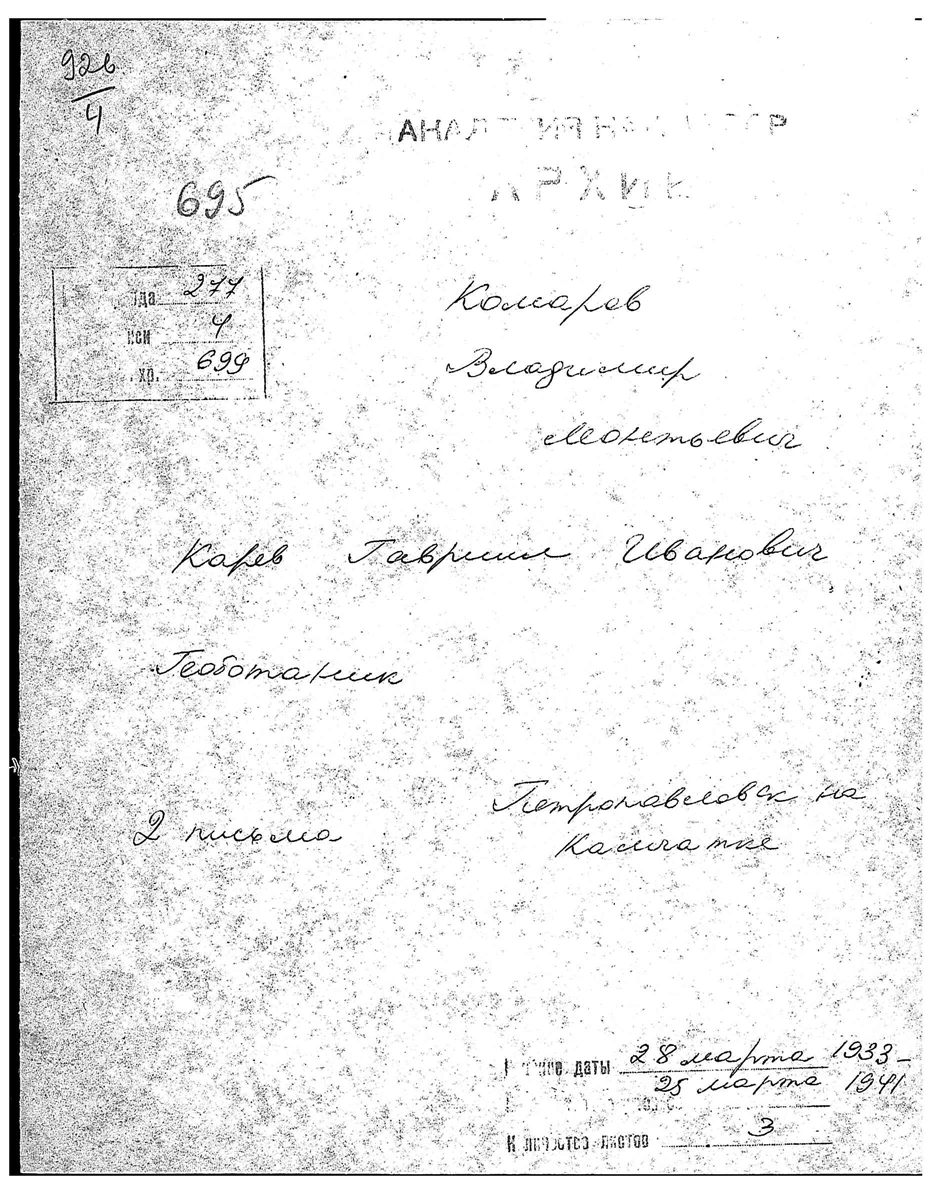 926
4
АРХИВ
695
277
4
699
хр.
Комаров
Владимир
Леонтьевич
Карев Гавриил Иванович
Геоботаник
2 письма
Петропавловск на
Камчатке
даты 28 марта 1933–
25 марта 1941
Количество листов 3